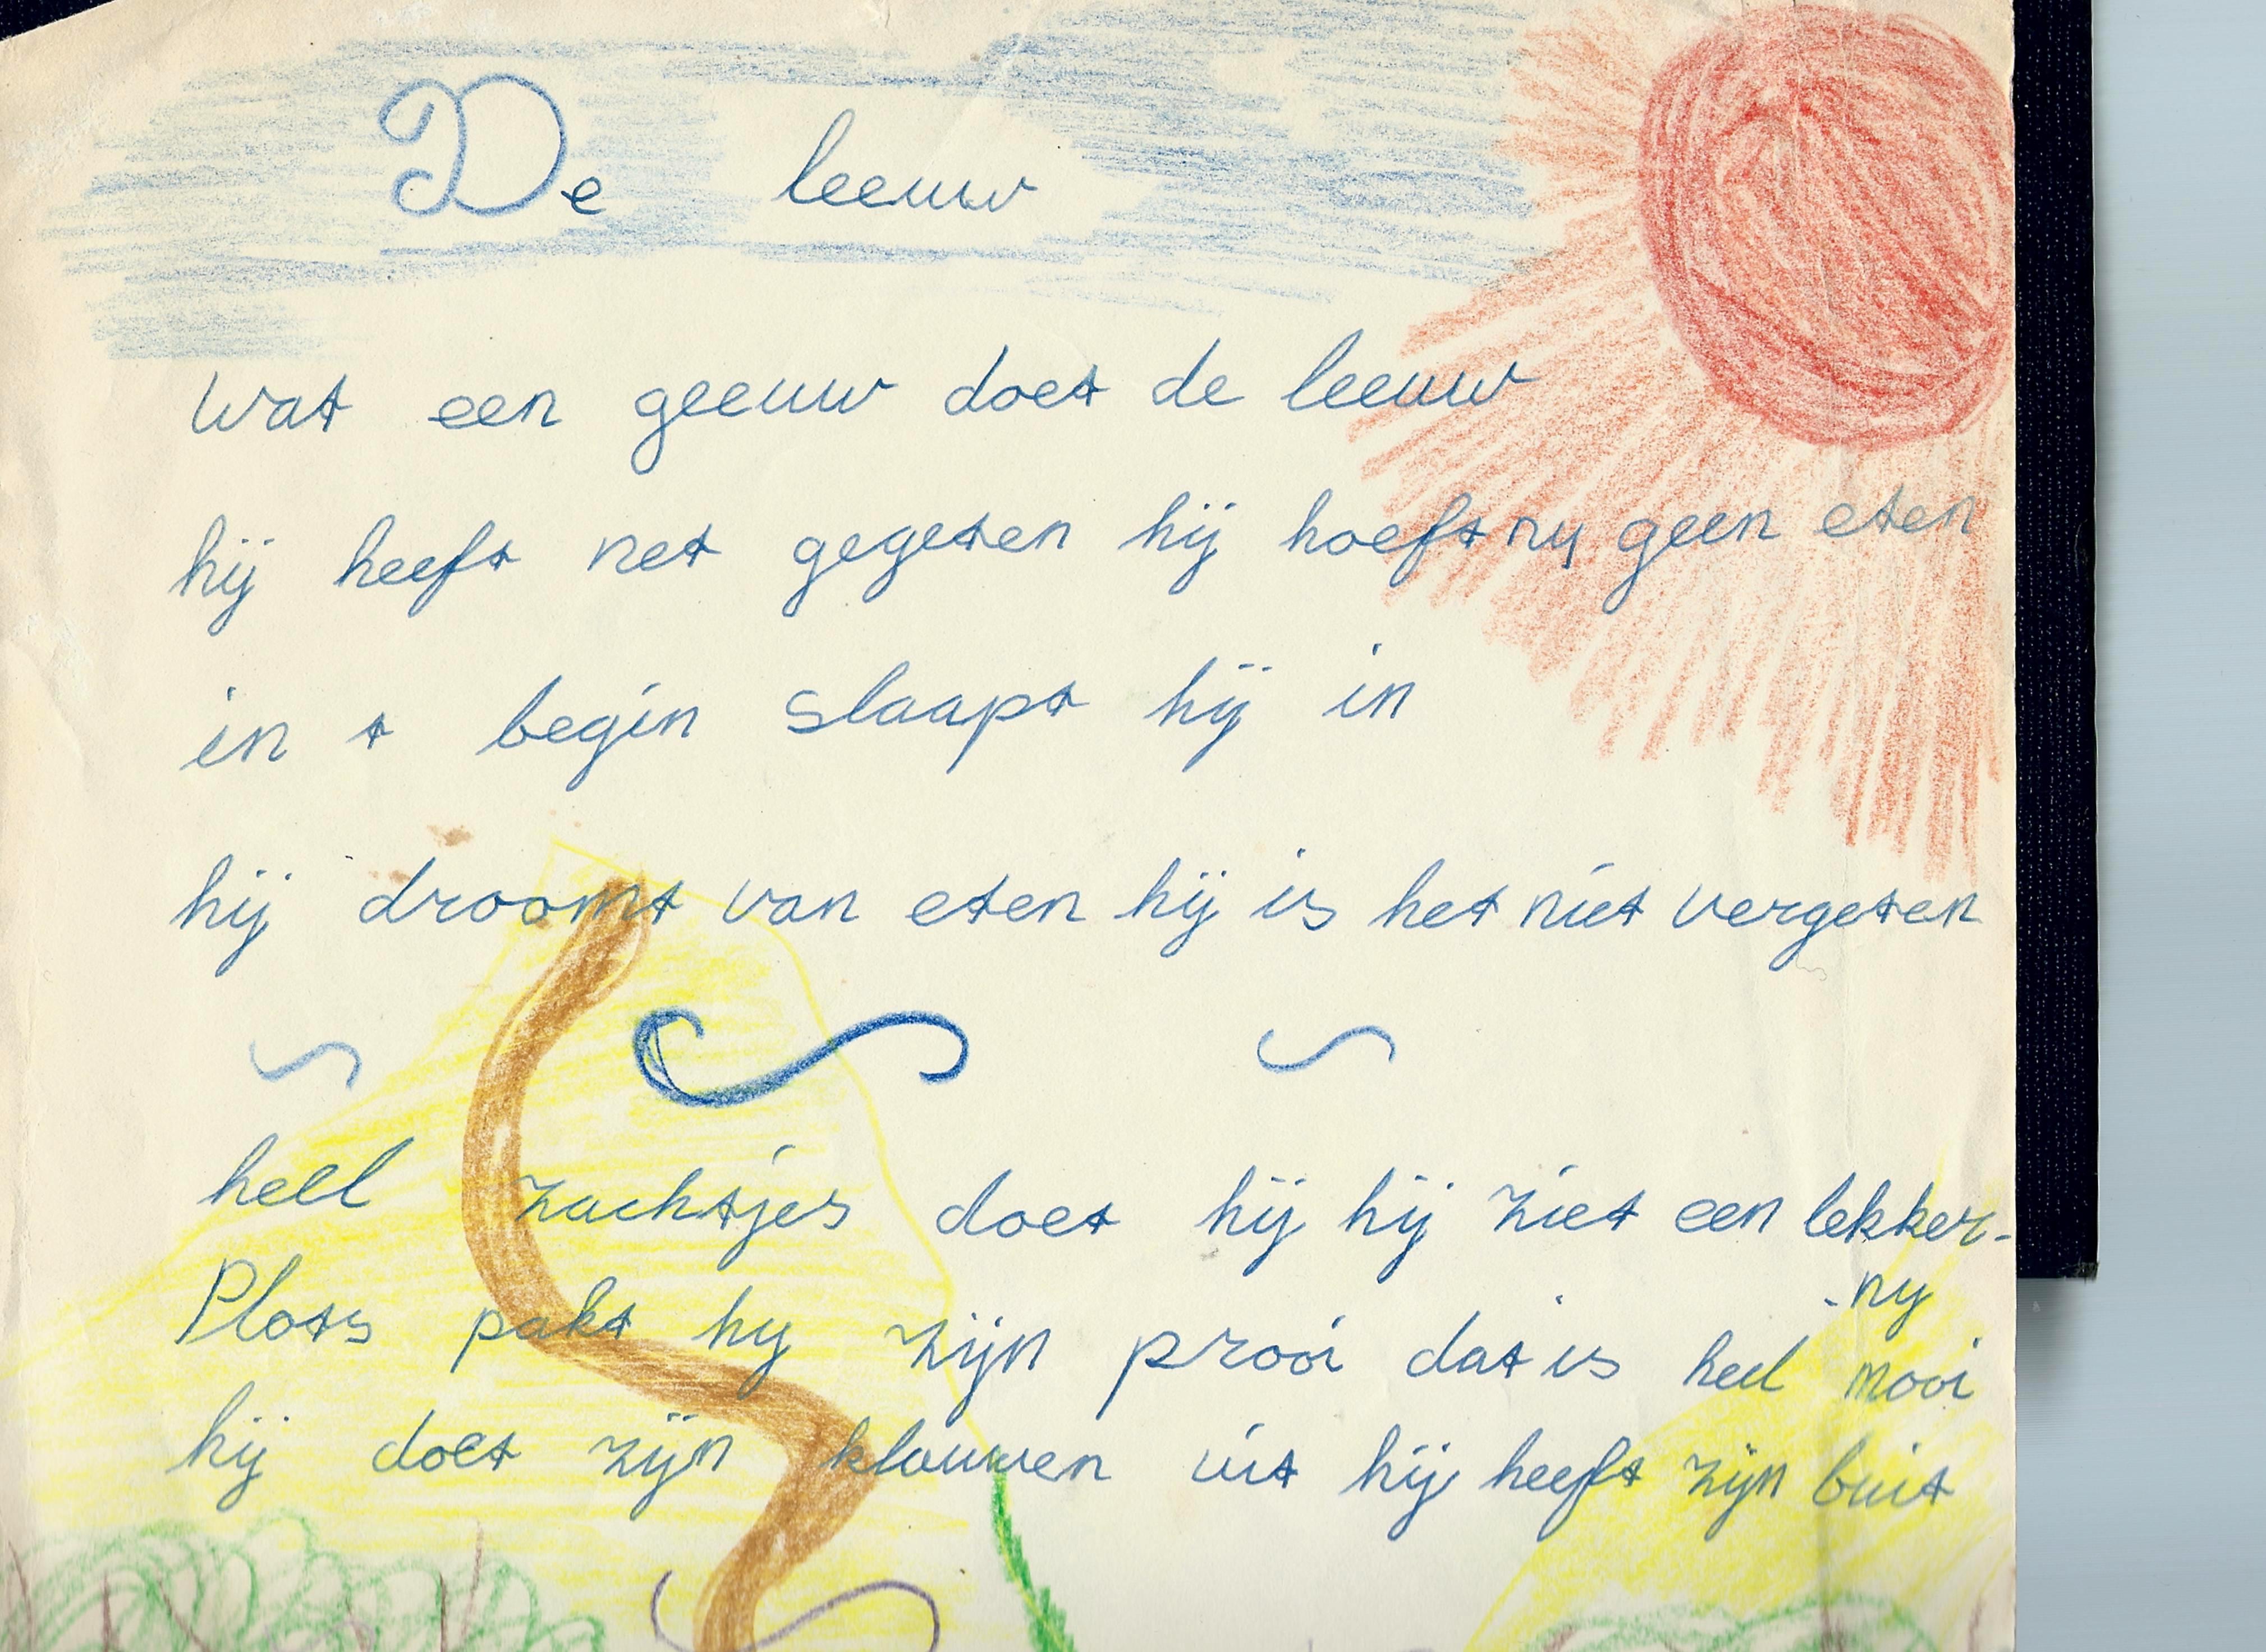 De leeuw
wat een geeuw doet de leeuw
hij heeft net gegeten hij hoeft ny geen eten
in t begin slaapt hij in
hij droomt van eten hij is het niet vergeten
heel zachtjes doet hij hij ziet een lekker-
-ny
Plots pakt hy zijn prooi dat is heel mooi
hij doet zijn klauwen uit hij heeft zijn buit